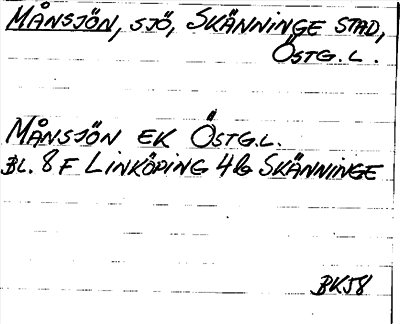 MÅNSJÖN, SJÖ, SKÄNNINGE STAD,
ÖSTG.L.
MÅNSJÖN EK ÖSTG.L.
BL. 8 F LINKÖPING 4 b SKÄNNINGE
BK58